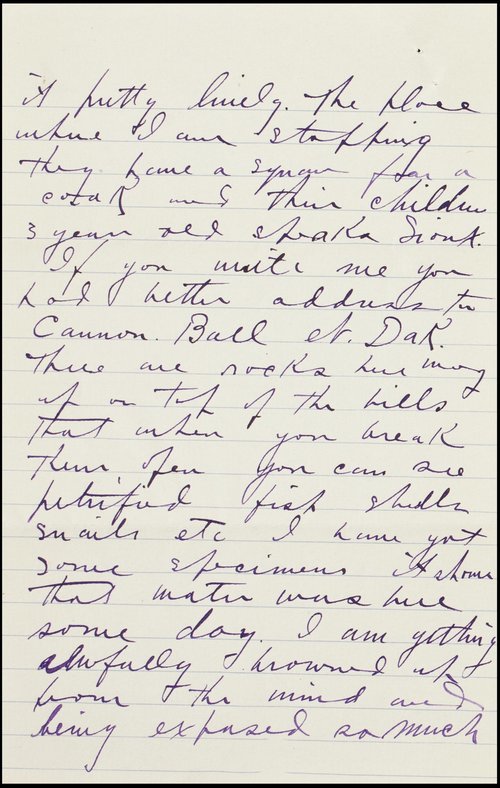 it pretty lively. The place
where I am stopping
they have a squaw for a
cook and their children
3 years old speaks Sioux.
If you write me you
had better address to
Cannon. Ball N. Dak.
There are rocks here way
up on top of the hills
that when you break
them open you can see
petrified fish shells
snails etc I have got
some specimens it shows
that water was here
some day. I am getting
awfully browned up
from the wind and
being exposed so much